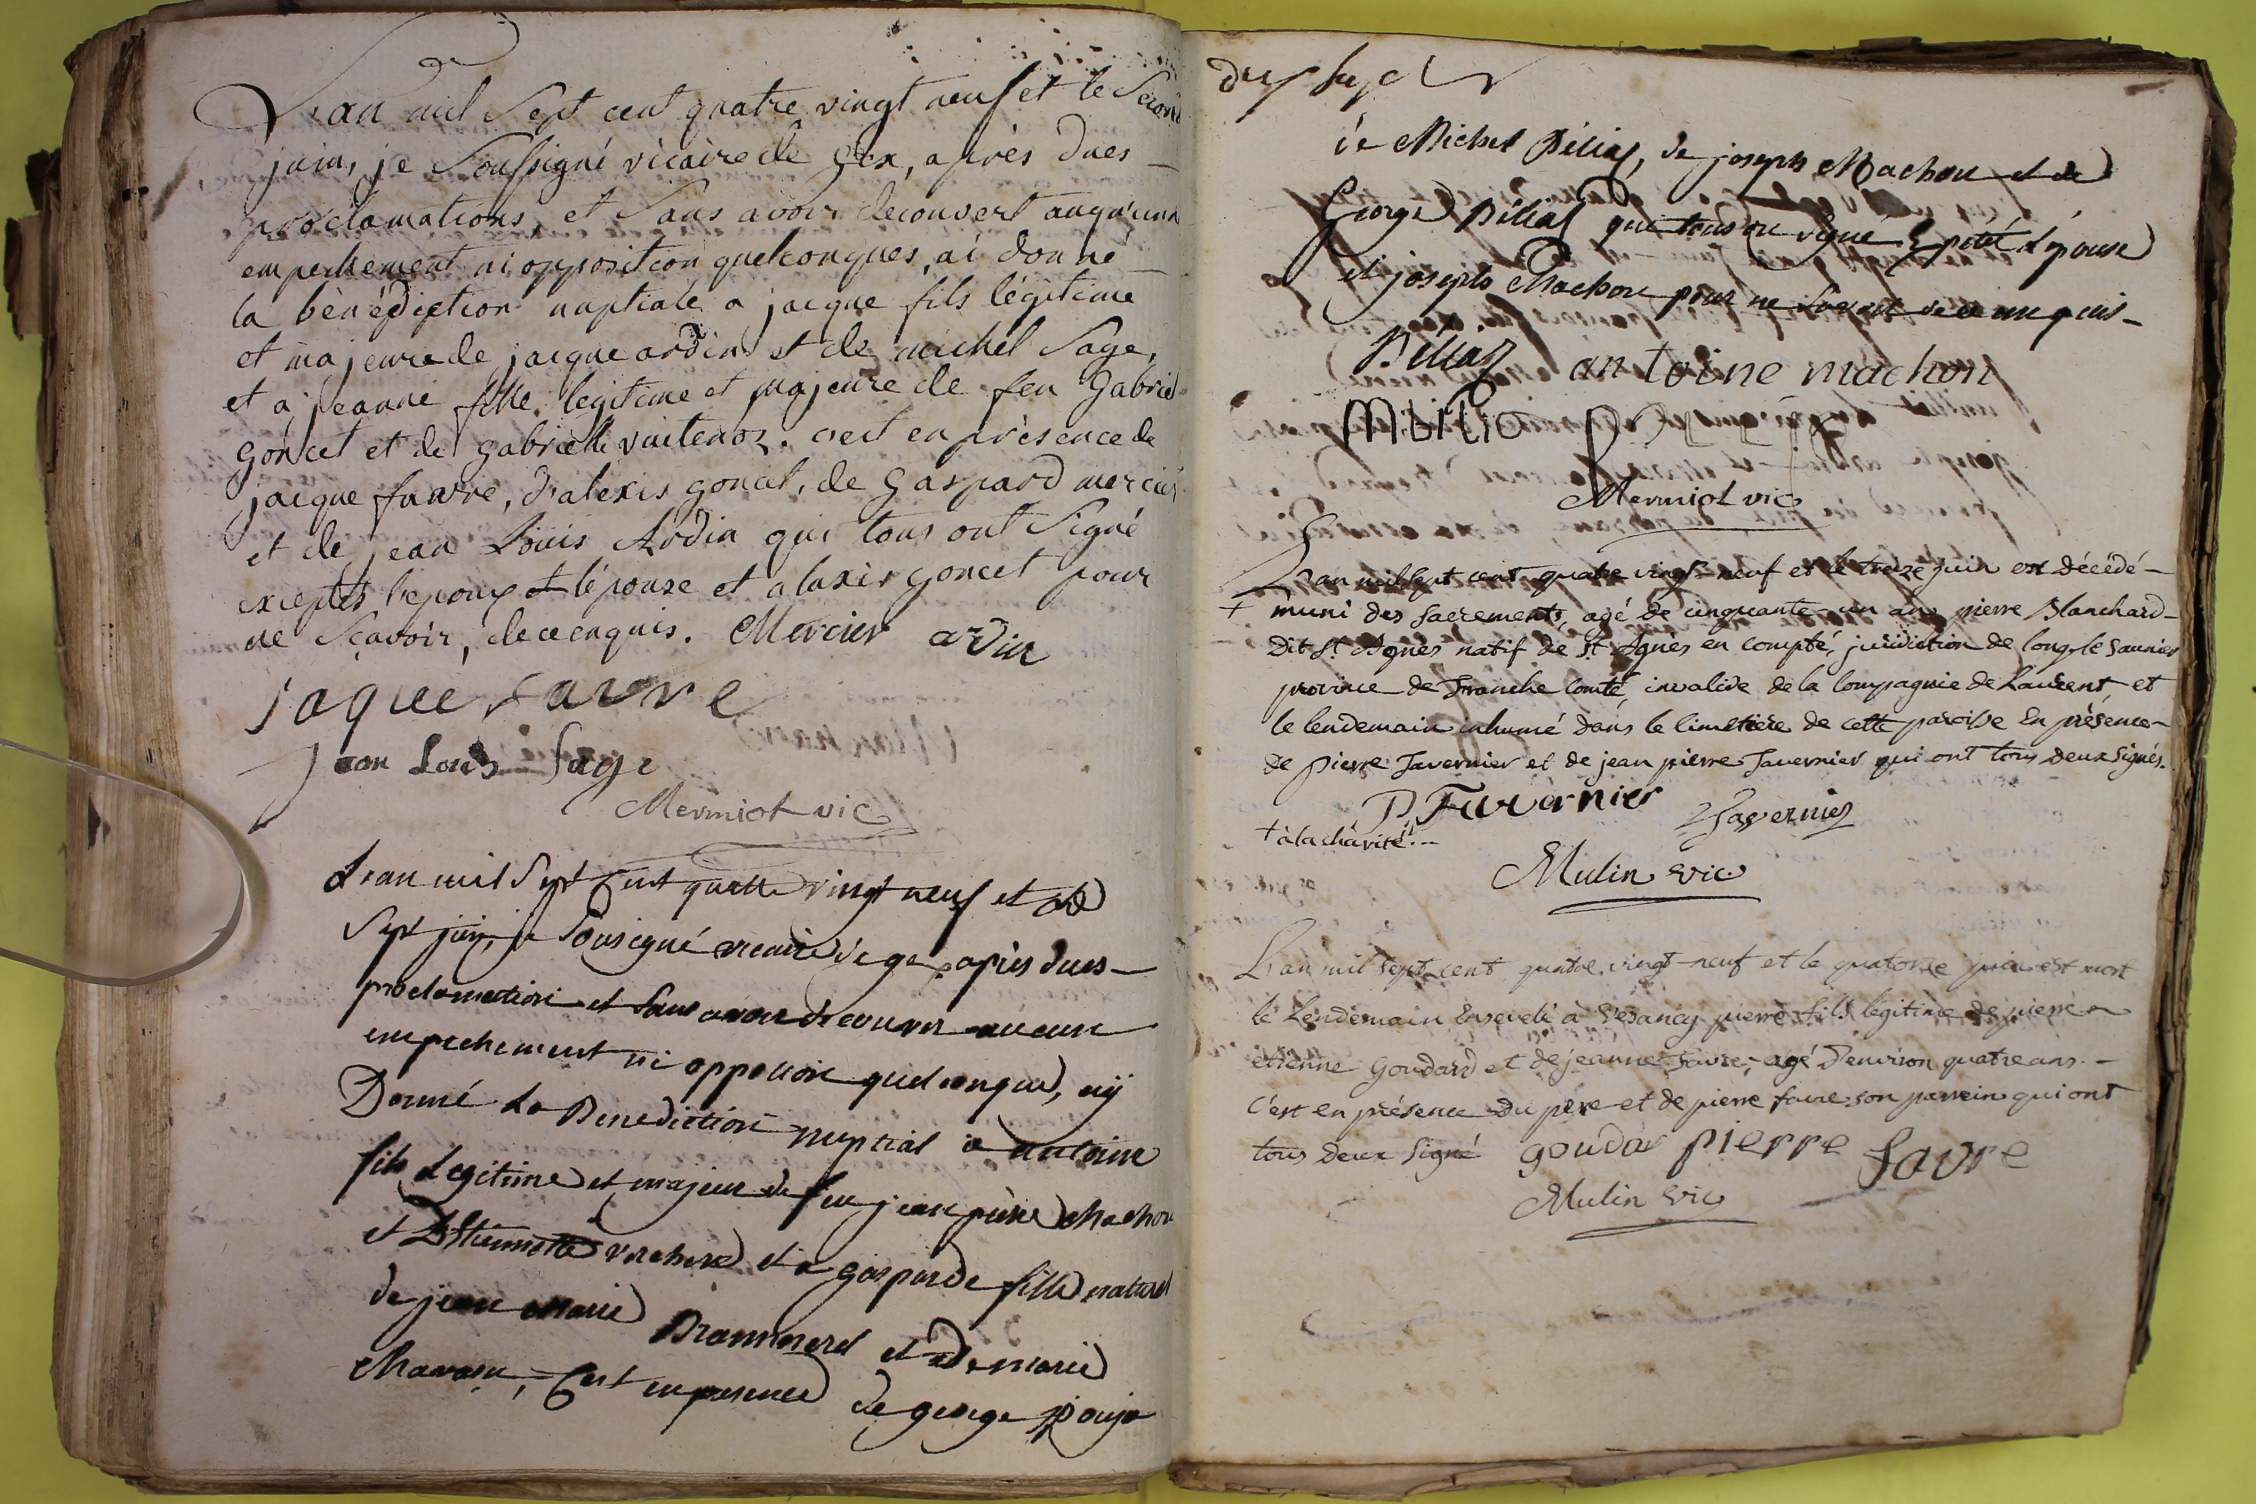 L'an mil Sept cent quatre vingt neuf et le Second
juin, je Soussigné vicaire de Gex, après dues
proclamations, et Sans avoir decouvert auqu'un
empechement ni opposition quelconques, ai donné
la bènèdiction nuptiale a jacque fils légitime
et majeure de jacque ardin et de michel Sage,
et a jeanne fille legitime et majeure de feu Gabriel
goncet et de gabrielle vuitenoz. cest en présence de
jacque favre, d'alexis goncet, de gaspard mercier
et de jean Louis Ardin qui tous ont Signé
exceptés l'epoux et lépouse et alaxis goncet pour
ne Sçavoir, de ce enquis. Mercier ardin
jaque favre
jean Louis Sage
Mermiot vic
L'an mil Sept Cent quatre vingt neuf et le
Sept juin, je Sousigné vicaire de gex apriès dues
proclamation et Sans avoir decouver aucun
empechement ni oppotion quelconque, aÿ
Donné La Benediction nuptial a antoine
fils Legitime et majeur de feu jean pierre Machon
et Estiennette et a gasparde fille naturel
de jean Marie et de marie
Cest en presence de george
de Michel Pillaz, de joseph Machon et de
George Pillaz qui tous on Signé Excpeté L'épouse
et joseph Machon pour ne Savoir de ce enquis
Pillaz antoine machon
Mermiot vic
L'an mil sept cent quatre vingt neuf et le treize juin est décédé
+ muni des sacrements, agé de cinquante-un ans pierre Blanchard
dit St. Agnès natif de St Agnès en compté, juridiction de long-le Saunier
province de Franche Comté, invalide de la Compagnie de Laurent, et
le lendemain inhumé dans le Cimetiere de cette paroisse En présence
de Pierre Tavernier et de jean pierre Tavernier qui ont tous deux signés.
P Tavernier Tavernier
+ à la chàrité
Mulin vic
L'an mil sept cent quatre vingt-neuf et le quatorze juin est mort
le Lendemain Enseveli à Vesancy pierre fils légitime de pierre
etienne Goudard et de jeanne Favre, agé d'environ quatre ans.
C'est en présence du père et de pierre favre son parrein qui ont
tous deux Signé goudar pierre favre
Mulin vic